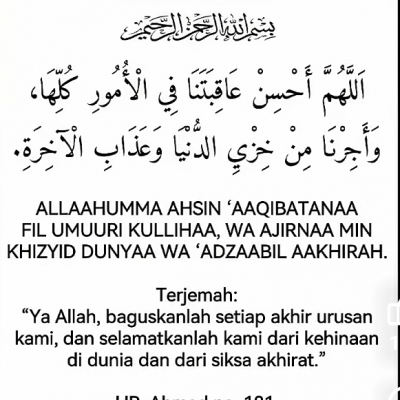 بسم الله الرحمن الرحيم
اَللَّهُمَّ أَحْسِنْ عَاقِبَتَنَا فِي الْأُمُورِ كُلِّهَا،
وَأَجِرْنَا مِنْ خِزْيِ الدُّنْيَا وَعَذَابِ الْآخِرَةِ.
ALLAAHUMMA AHSIN ‘AAQIBATANAA
FIL UMUURI KULLIHAA, WA AJIRNAA MIN
KHIZYID DUNYAA WA ‘ADZAABIL AAKHIRAH.
Terjemah:
“Ya Allah, baguskanlah setiap akhir urusan
kami, dan selamatkanlah kami dari kehinaan
di dunia dan dari siksa akhirat.”